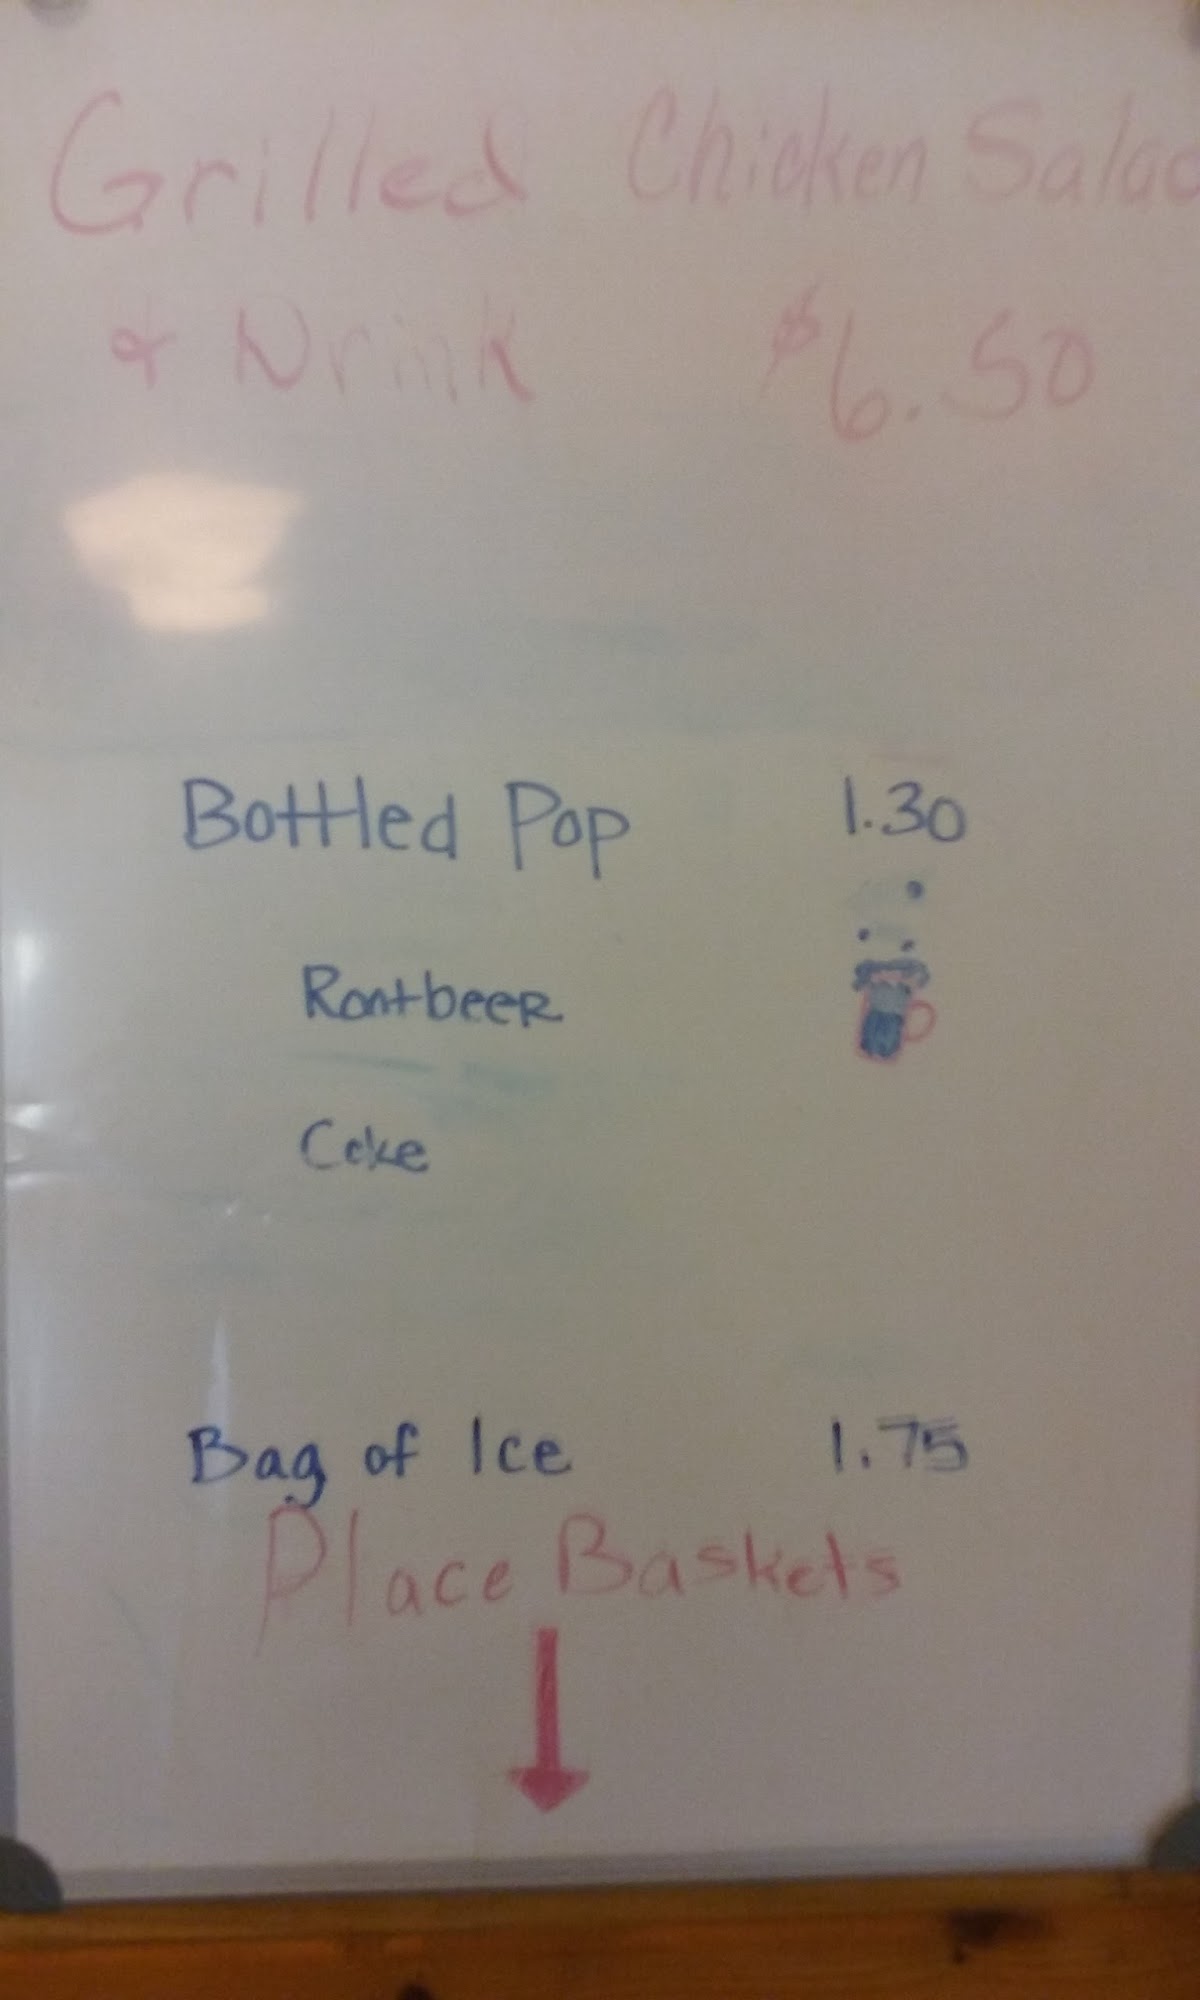 Grilled Chicken Salad
& Drink $6.50
Bottled Pop 1.30
Rootbeer
Coke
Bag of Ice 1.75
Place Baskets